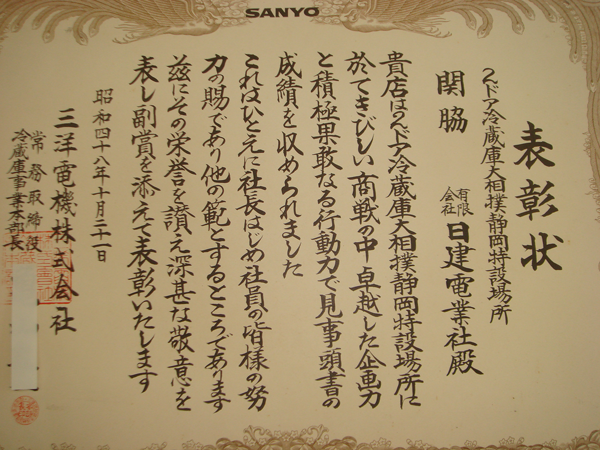 SANYO
表彰状
2ドア冷蔵庫大相撲静岡特設場所
関脇
有限会社 日建電業社殿
貴店は2ドア冷蔵庫大相撲静岡特設場所に
於てきびしい商戦の中卓越した企画力
と積極果敢なる行動力で見事頭書の
成績を収められました
これはひとえに社長はじめ社員の皆様の努
力の賜であり他の範とするところであります
茲にその栄誉を讃え深甚な敬意を
表し副賞を添えて表彰いたします
昭和四十八年十月三十一日
三洋電機株式会社
常務取締役
冷蔵庫事業本部長